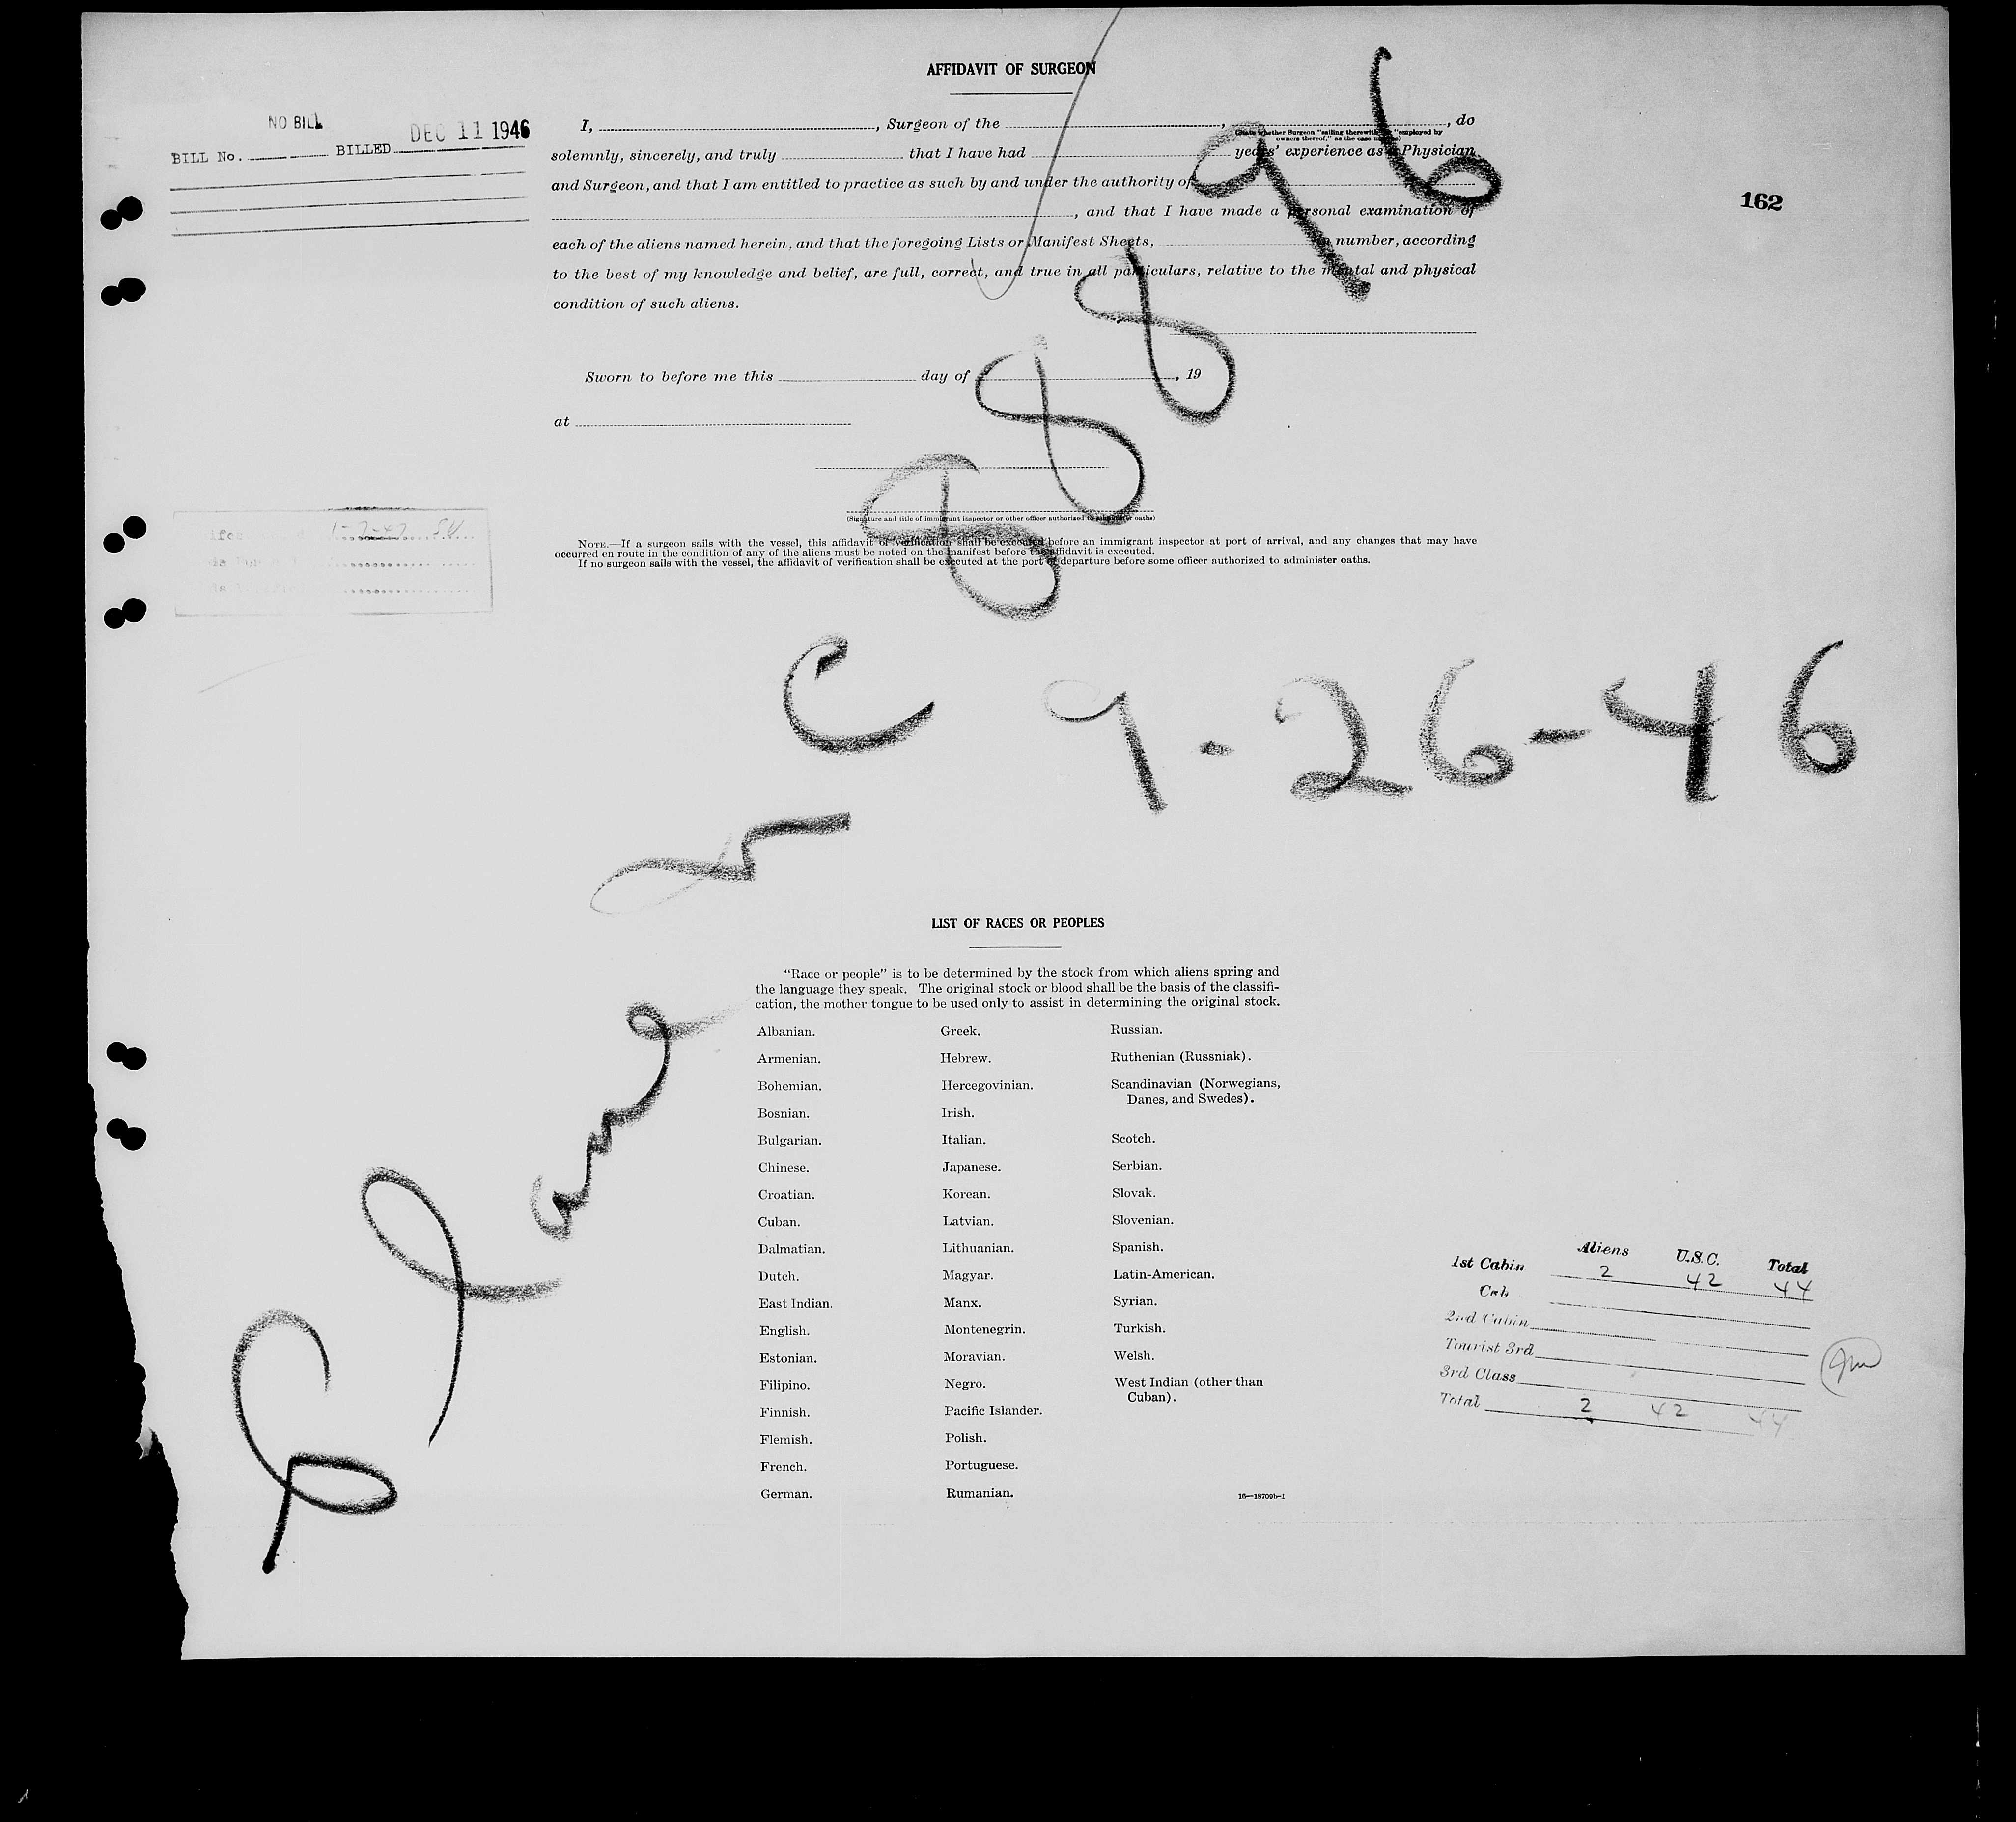 AFFIDAVIT OF SURGEON
NO BILL
BILL No. BILLED DEC 11 1946
I, , Surgeon of the , , do
(State whether Surgeon "sailing therewith," or "employed by
owners thereof," as the case may be)
solemnly, sincerely, and truly that I have had years' experience as a Physician
and Surgeon, and that I am entitled to practice as such by and under the authority of
, and that I have made a personal examination of
162
each of the aliens named herein, and that the foregoing Lists or Manifest Sheets, in number, according
to the best of my knowledge and belief, are full, correct, and true in all particulars, relative to the mental and physical
condition of such aliens.
Sworn to before me this day of , 19
at
(Signature and title of immigrant inspector or other officer authorized to administer oaths)
1-7-47
NOTE.—If a surgeon sails with the vessel, this affidavit of verification shall be executed before an immigrant inspector at port of arrival, and any changes that may have
occurred en route in the condition of any of the aliens must be noted on the manifest before the affidavit is executed.
If no surgeon sails with the vessel, the affidavit of verification shall be executed at the port of departure before some officer authorized to administer oaths.
Plane NC 88896
9-26-46
LIST OF RACES OR PEOPLES
"Race or people" is to be determined by the stock from which aliens spring and
the language they speak. The original stock or blood shall be the basis of the classifi-
cation, the mother tongue to be used only to assist in determining the original stock.
Albanian.
Armenian.
Bohemian.
Bosnian.
Bulgarian.
Chinese.
Croatian.
Cuban.
Dalmatian.
Dutch.
East Indian.
English.
Estonian.
Filipino.
Finnish.
Flemish.
French.
German.
Greek.
Hebrew.
Hercegovinian.
Irish.
Italian.
Japanese.
Korean.
Latvian.
Lithuanian.
Magyar.
Manx.
Montenegrin.
Moravian.
Negro.
Pacific Islander.
Polish.
Portuguese.
Rumanian.
Russian.
Ruthenian (Russniak).
Scandinavian (Norwegians,
Danes, and Swedes).
Scotch.
Serbian.
Slovak.
Slovenian.
Spanish.
Latin-American.
Syrian.
Turkish.
Welsh.
West Indian (other than
Cuban).
16—18709b-1
Aliens U.S.C. Total
1st Cabin 2 42 44
Cab
2nd Cabin
Tourist 3rd
3rd Class
Total 2 42 44